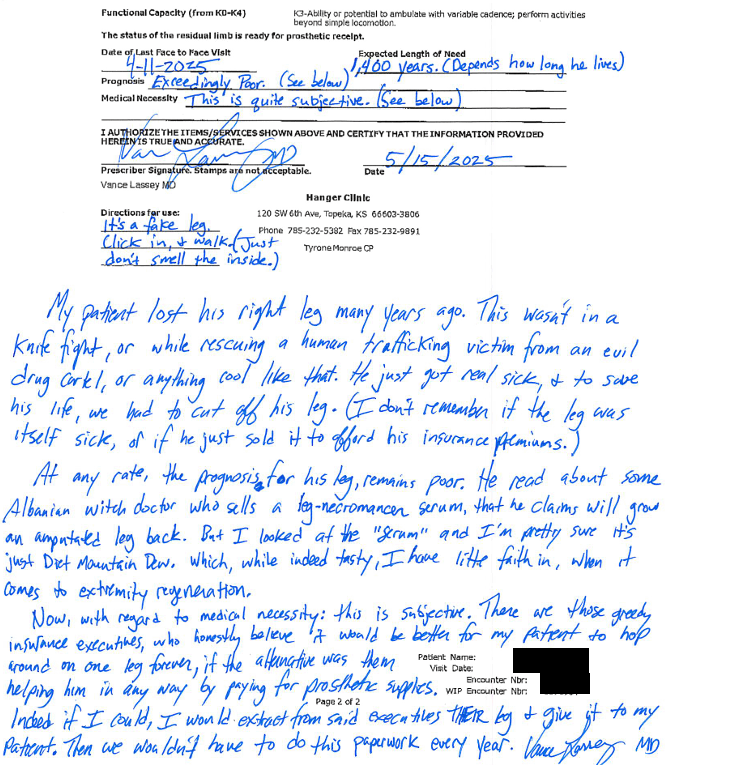 Functional Capacity (from K0-K4) K3-Ability or potential to ambulate with variable cadence; perform activities
beyond simple locomotion.
The status of the residual limb is ready for prosthetic receipt.
Date of Last Face to Face Visit Expected Length of Need
4-11-2025 1,400 years. (Depends how long he lives)
Prognosis Exceedingly Poor. (See below)
Medical Necessity This is quite subjective. (See below)
I AUTHORIZE THE ITEMS/SERVICES SHOWN ABOVE AND CERTIFY THAT THE INFORMATION PROVIDED
HEREIN IS TRUE AND ACCURATE.
Van Lassey MD 5/15/2025
Prescriber Signature. Stamps are not acceptable. Date
Vance Lassey MD
Hanger Clinic
Directions for use: 120 SW 6th Ave, Topeka, KS 66603-3806
It's a fake leg.
Click in, & walk. (Just Phone 785-232-5382 Fax 785-232-9891
don't smell the inside.) Tyrone Monroe CP
My patient lost his right leg many years ago. This wasn't in a
knife fight, or while rescuing a human trafficking victim from an evil
drug cartel, or anything cool like that. He just got real sick, & to save
his life, we had to cut off his leg. (I don't remember if the leg was
itself sick, or if he just sold it to afford his insurance premiums.)
At any rate, the prognosis for his leg, remains poor. He read about some
Albanian witch doctor who sells a leg-necromancen serum, that he claims will grow
an amputated leg back. But I looked at the "serum" and I'm pretty sure it's
just Diet Mountain Dew. Which, while indeed tasty, I have little faith in, when it
comes to extremity regeneration.
Now, with regard to medical necessity: this is subjective. There are those greedy
insurance executives, who honestly believe it would be better for my patient to hop
around on one leg forever, if the alternative was them
helping him in any way by paying for prosthetic supplies.
Patient Name:
Visit Date:
Encounter Nbr:
WIP Encounter Nbr:
Page 2 of 2
Indeed if I could, I would extract from said executives THEIR leg & give it to my
patient. Then we wouldn't have to do this paperwork every year. Vance Lassey MD